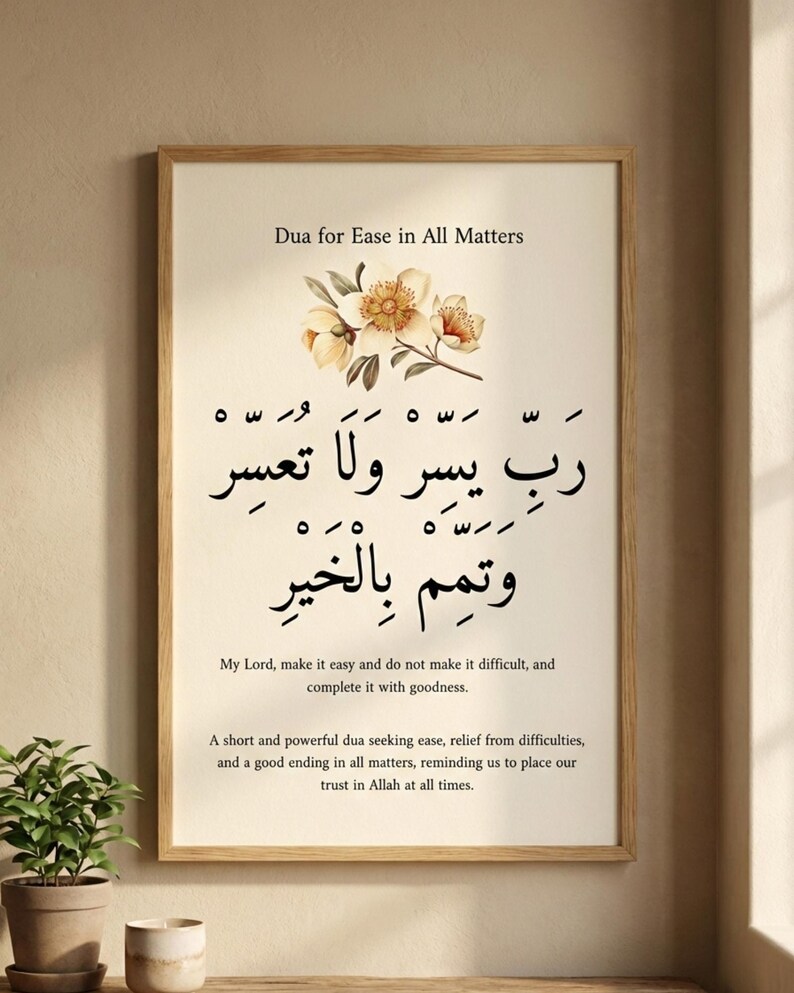 Dua for Ease in All Matters
رَبِّ يَسِّرْ وَلَا تُعَسِّرْ
وَتَمِّمْ بِالْخَيْرِ
My Lord, make it easy and do not make it difficult, and
complete it with goodness.
A short and powerful dua seeking ease, relief from difficulties,
and a good ending in all matters, reminding us to place our
trust in Allah at all times.